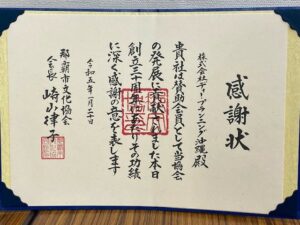 感謝状
株式会社ティープランニング沖縄殿
貴社は賛助会員として当協会
の発展に貢献されました本日
創立三十周年にあたりその功績
に深く感謝の意を表します
令和五年二月二十日
那覇市文化協会
会長 崎山律子